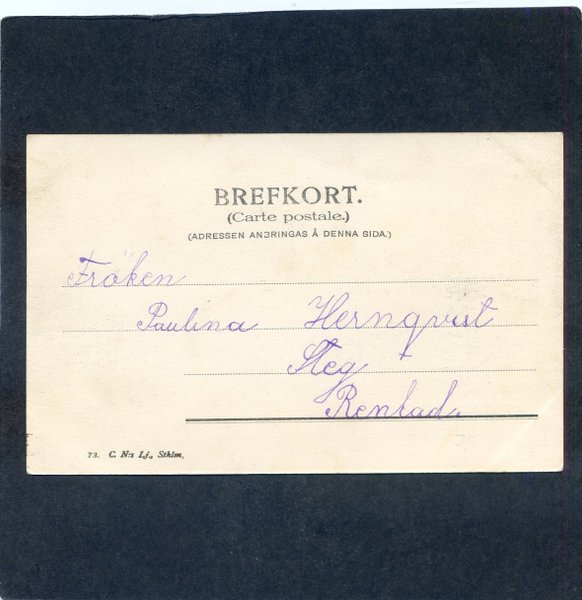 BREFKORT.
(Carte postale.)
(ADRESSEN ANBRINGAS Å DENNA SIDA.)
Fröken
Paulina Hernqvist
Steg
73. C. N:s Lj., Sthlm.